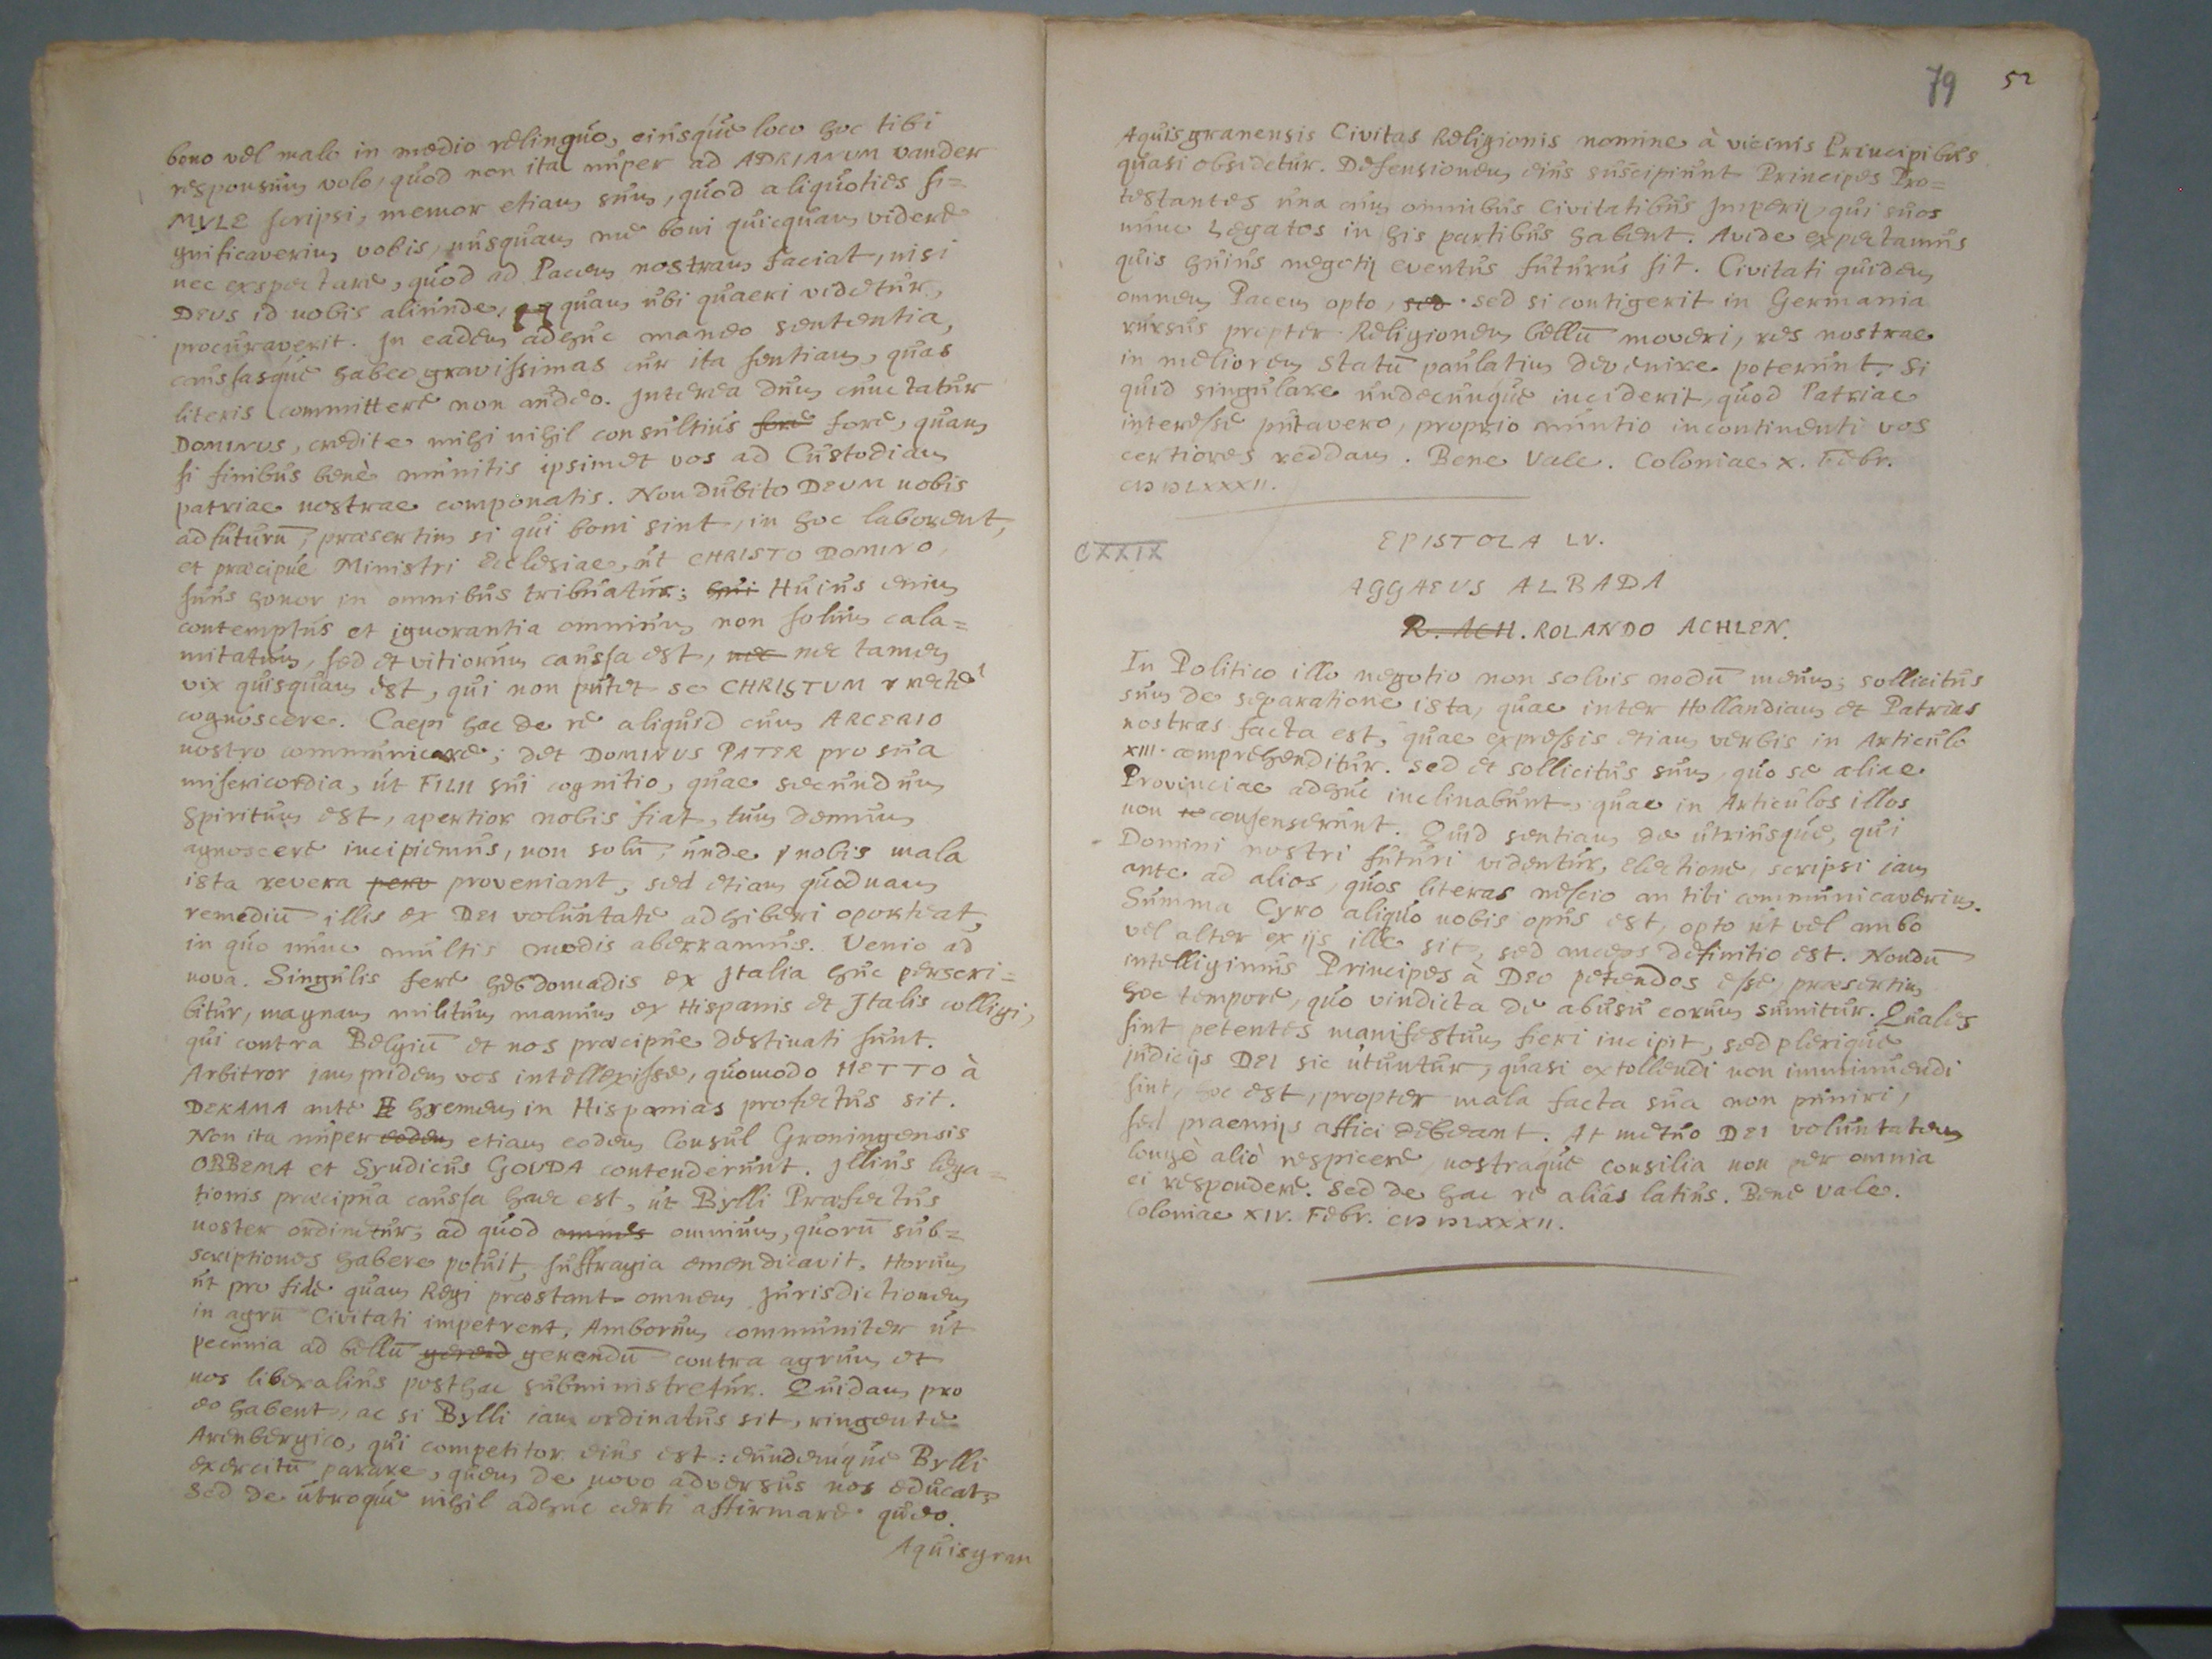 bono vel malo in medio relinquo, eiusque loco hoc tibi
responsum volo, quod non ita nuper ad ADRIANUM vander
MYLE scripsi, memor etiam sum, quod aliquoties si=
gnificaverim vobis, nusquam me boni quicquam videre
nec exspectare, quod ad Pacem nostram faciat, nisi
DEUS id nobis aliunde, quam ubi quaeri videtur,
procuraverit. In eadem adhuc maneo sententia,
caussasque habeo gravissimas cur ita sentiam, quas
literis committere non audeo. Interea dum cunctatur
DOMINUS, credite mihi nihil consultius fore fore, quam
si finibus benè munitis ipsimet vos ad Custodiam
patriae nostrae componatis. Non dubito DEUM nobis
adfuturū, praesertim si qui boni sint, in hoc laborent,
et praecipúe Ministri Ecclesiae, ut CHRISTO DOMINO
suus honor in omnibus tribuatur; hui Huius enim
contemptus et ignorantia omnium non solum cala=
mitatum, sed et vitiorum caussa est, nec nec tamen
vix quisquam est, qui non putet se CHRISTUM r recte
cognoscere. Caepi hac de re aliquid cum ARCERIO
nostro communicare; det DOMINUS PATER pro sua
misericordia, ut FILII sui cognitio, quae secundum
Spiritum est, apertior nobis fiat, tum demum
agnoscere incipiemus, non solū, unde nobis mala
ista revera perv proveniant, sed etiam quodnam
remediū illis ex DEI voluntate adhiberi oporteat,
in quo nunc multis modis aberramus. Venio ad
nova. Singulis fere hebdomadis ex Italia huc perscri=
bitur, magnam militum manum ex Hispanis et Italis colligi,
qui contra Belgiū et nos praecipue destinati sunt.
Arbitror jam pridem vos intellexisse, quomodo HETTO à
DEKAMA ante H hyemem in Hispanias profectus sit.
Non ita nuper eodem etiam eodem Consul Groningensis
OBBEMA et Syndicus GOUDA contenderunt. Illius lega=
tionis praecipua caussa haec est, ut Bylli Praefectus
noster ordinetur, ad quod omnes omnium, quorū sub=
scriptiones habere potuit, suffragia emendicavit. Horum
ut pro fide quam Regi praestant omnem jurisdictionem
in agrū Civitati impetrent. Amborum communiter ut
pecunia ad bellū gerend gerendū contra agrum et
nos liberalius posthac subministretur. Quidam pro
eo habent, ac si Bylli iam ordinatus sit, ringente
Arenbergico, qui competitor eius est: eundemque Bylli
exercitū parare, quem de novo adversus nos educat,
sed de utroque nihil adhuc certi affirmare queo.
Aquisgran
79 52
Aquisgranensis Civitas Religionis nomine à vicinis Principibus
quasi obsidetur. Defensionem eius suscipiunt Principes Pro=
testantes una cum omnibus Civitatibus Imperij, qui suos
nunc Legatos in his partibus habent. Avide expectamus
quis huius negotij eventus futurus sit. Civitati quidem
omnem Pacem opto, sed sed si contigerit in Germania
rursus propter Religionem bellū moveri, res nostrae
in meliorem statū paulatim devenire poterunt. Si
quid singulare undecunque inciderit, quod Patriae
interesse putavero, proprio nuntio incontinenti vos
certiores reddam. Bene Vale. Coloniae X. Febr.
CIↃ IↃ LXXXII.
EPISTOLA LV.
CXXIX
AGGAEUS ALBADA
R. ACH. ROLANDO ACHLEN.
In Politico illo negotio non solvis nodū meum; sollicitus
sum de separatione ista, quae inter Hollandiam et Patrias
nostras facta est, quae expressis etiam verbis in Articulo
XIII. comprehenditur. Sed et sollicitus sum, quo se aliae
Provinciae adhuc inclinabunt, quae in Articulos illos
non consenserunt. Quid sentiam de utriusque, qui
Domini nostri futuri videntur, electione, scripsi jam
ante ad alios, quos literas nescio an tibi communicaverim.
Summa Cyro aliquo nobis opus est, opto ut vel ambo
vel alter ex ijs ille sit, sed anceps definitio est. Nondū
intelligimus Principes à Deo petendos esse, praesertim
hoc tempore, quo vindicta de abusu eorum sumitur. Quales
sint petentes manifestum fieri incipit, sed plerique
judicijs DEI sic utuntur, quasi extollendi non imminuendi
sint, hoc est, propter mala facta sua non puniri,
sed praemijs affici debeant. At metuo DEI voluntatem
longè aliò respicere, nostraque consilia non per omnia
ei respondere. Sed de hac re aliàs latius. Bene vale.
Coloniae XIV. Febr. CIↃ IↃ LXXXII.